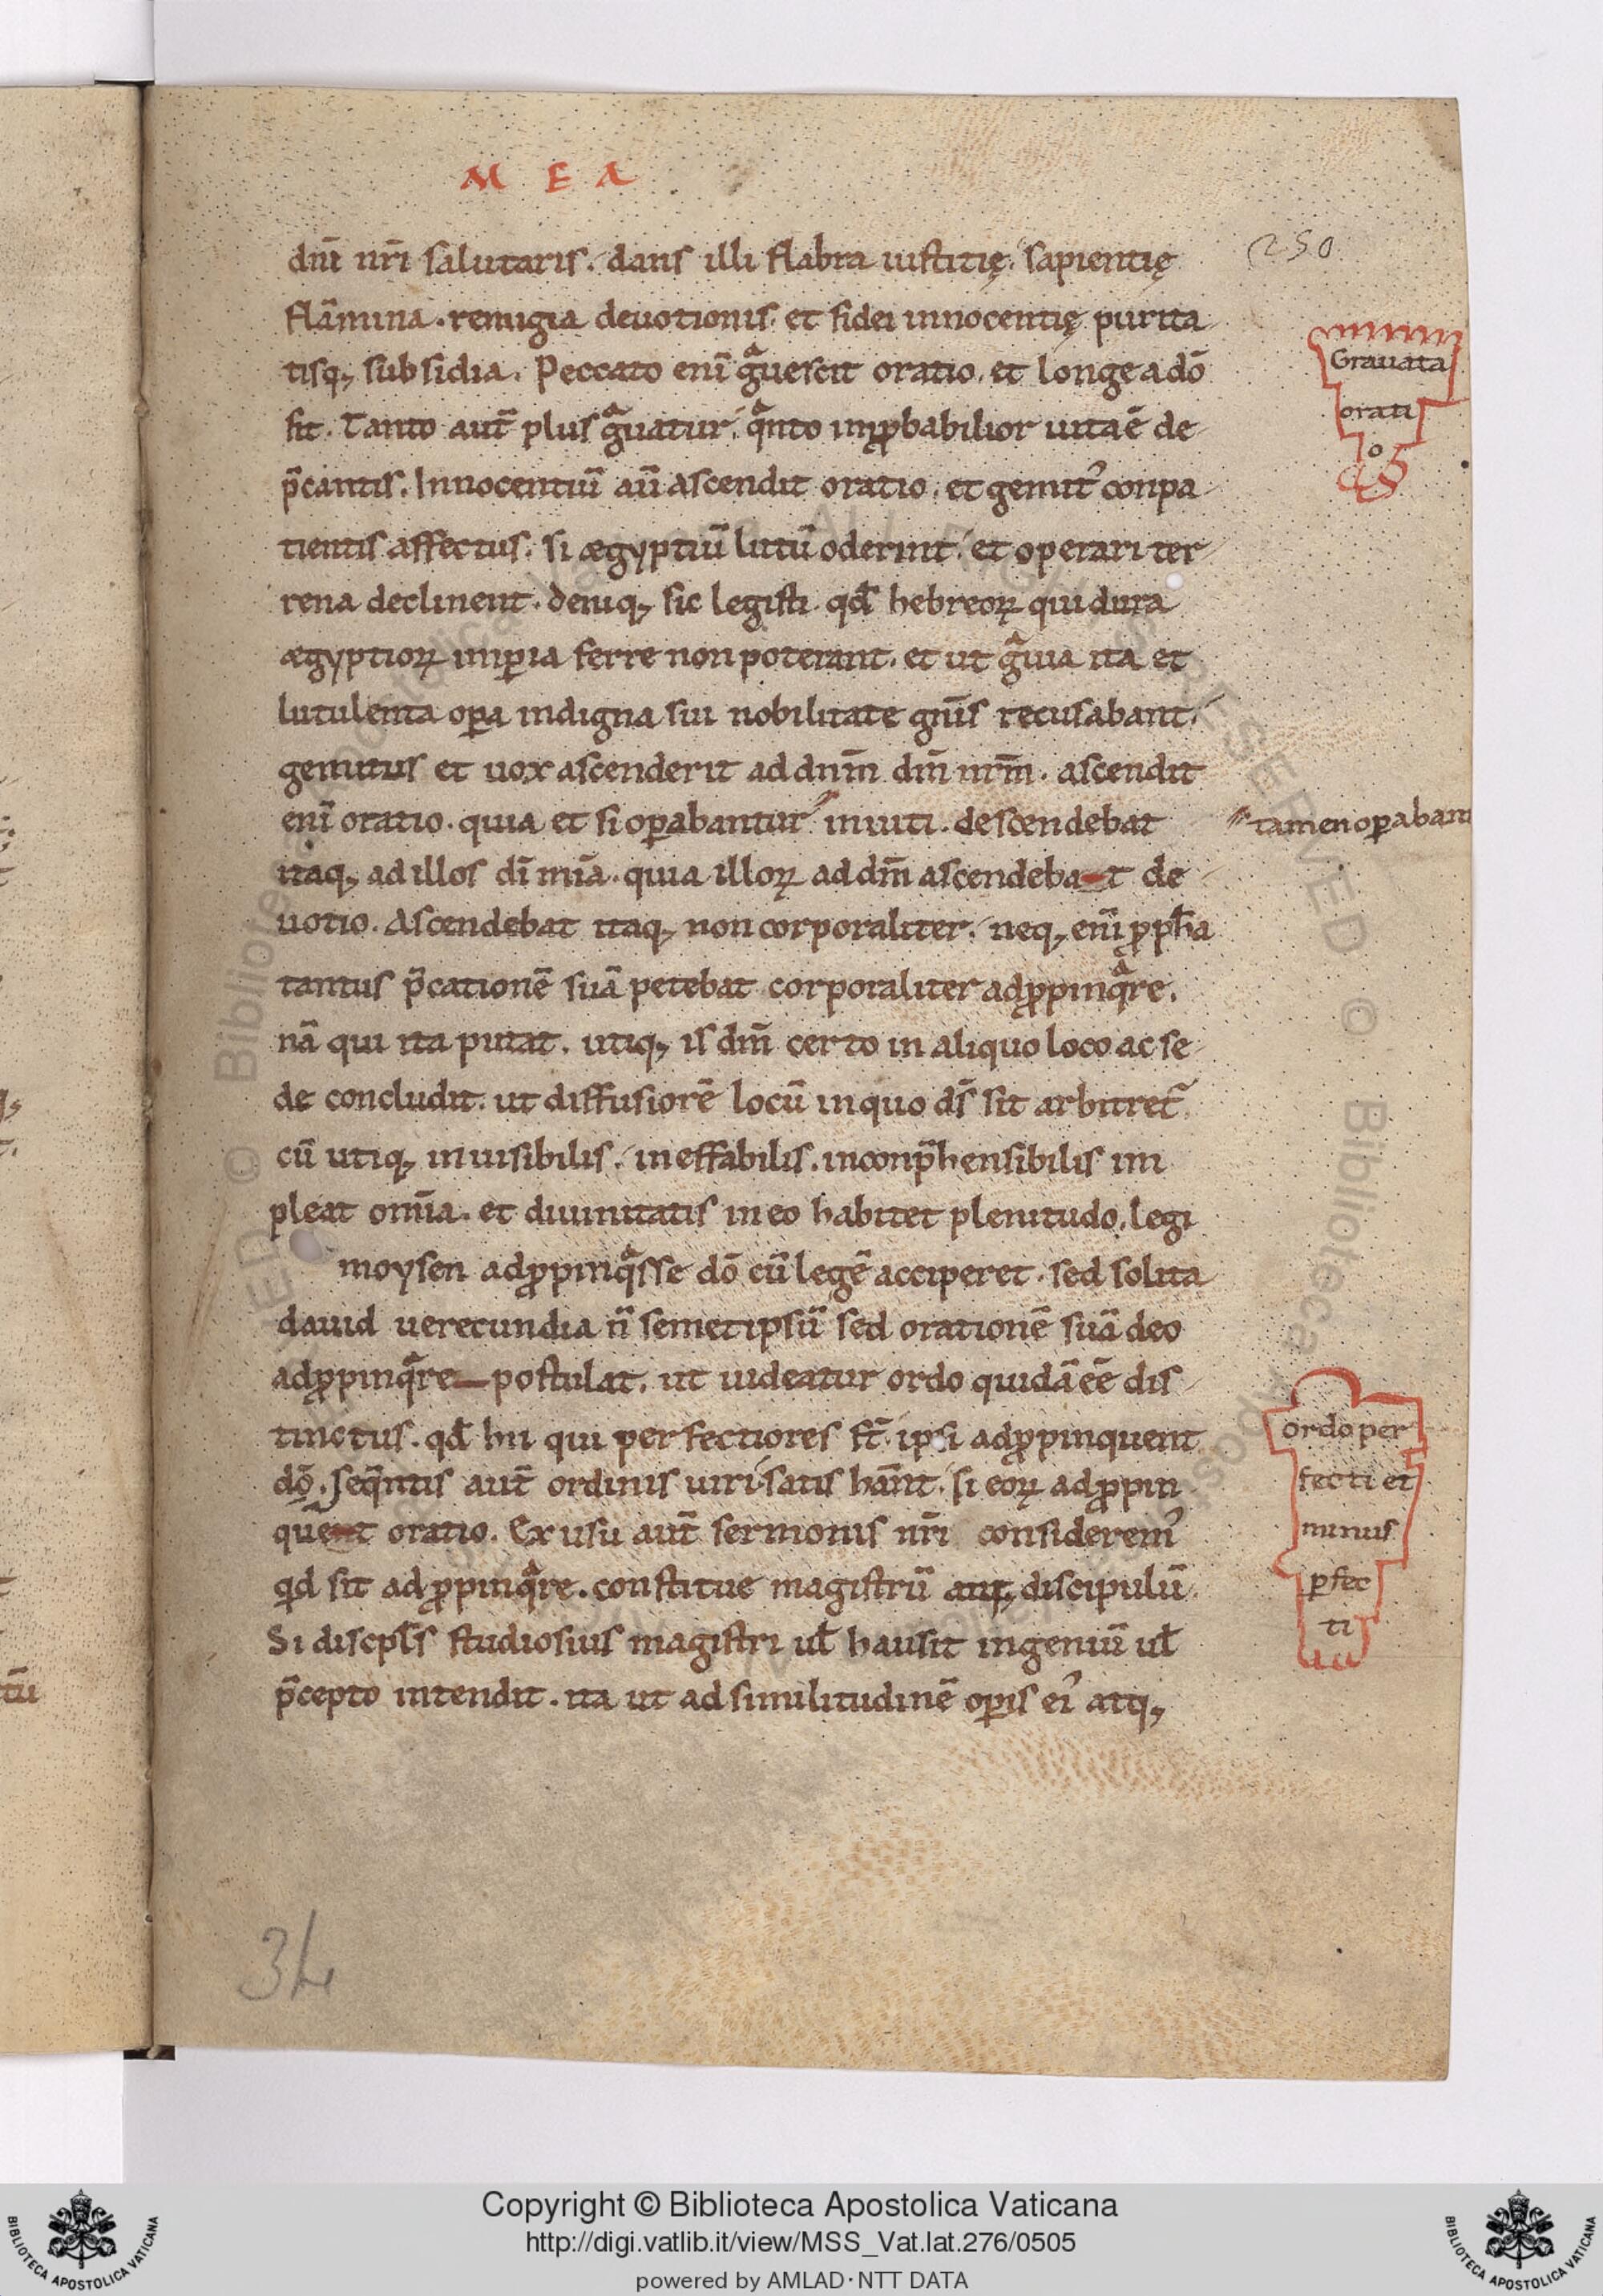 M E A
250
dnī nr̄i salutaris. dans illi flabra iustitię. sapientię
flāmina. remigia deuotionis. et fidei innocentię purita
tisq; subsidia. Peccato enī gͣuescit oratio. et longe a dō
fit. Tanto aut̄ plus gͣuatur. qͣnto inꝓbabilior uita ē de
p̄cantis. Innocentiū aū ascendit oratio. et gemit᾽ conpa
tientis affectus. si ægyptiū lutū oderint. et operari ter
rena declinent. deniq; sic legisti. qđ hebreoꝝ qui dura
ægyptioꝝ imꝑia ferre non poterant. et ut gͣuia ita et
lutulenta oꝑa indigna sui nobilitate gn̄is recusabant.
gemitus et uox ascenderit ad dnm̄ dm̄ nrm̄. ascendit
enī oratio. quia et si oꝑabantur inuiti. descendebat
itaq; ad illos dī mīa. quia illoꝝ ad dm̄ ascendebat de
uotio. Ascendebat itaq; non corporaliter. neq; enī ꝓpħa
tantus p̄cationē suā petebat corporaliter adꝓpinqͣre.
nā qui ita putat. utiq; is dm̄ certo in aliquo loco ac se
de concludit. ut diffusiorē locū in quo ds̄ sit arbitret̄
cū utiq; inuisibilis. ineffabilis. inconp̄hensibilis im
pleat om̄ia. et diuinitatis in eo habitet plenitudo. legi
moysen adꝓpinqͣsse dō cū legē acciperet. sed solita
dauid uerecundia n̄ semetipsū sed orationē suā deo
adꝓpinqͣre postulat. ut uideatur ordo quidā eē dis
tinctus. qđ hii qui perfectiores st̄. ipsi adꝓpinquent
dō. Seq̄ntis aut̄ ordinis uiri satis hānt. si eoꝝ adꝓpin
quet oratio. Ex usu aut̄ sermonis nr̄i considerem᾽
qđ sit adꝓpinqͣre. constitue magistrū atq; discipulū.
Si discpls̄ studiosius magistri uł hausit ingeniū uł
p̄cepto intendit. ita ut ad similitudinē oꝑis ei᾽ atq;
Grauata
orati
o
tamen oꝑabant
ordo per
fecti et
minus
ꝑfec
ti
34
Copyright © Biblioteca Apostolica Vaticana
http://digi.vatlib.it/view/MSS_Vat.lat.276/0505
powered by AMLAD·NTT DATA
BIBLIOTECA APOSTOLICA VATICANA
BIBLIOTECA APOSTOLICA VATICANA